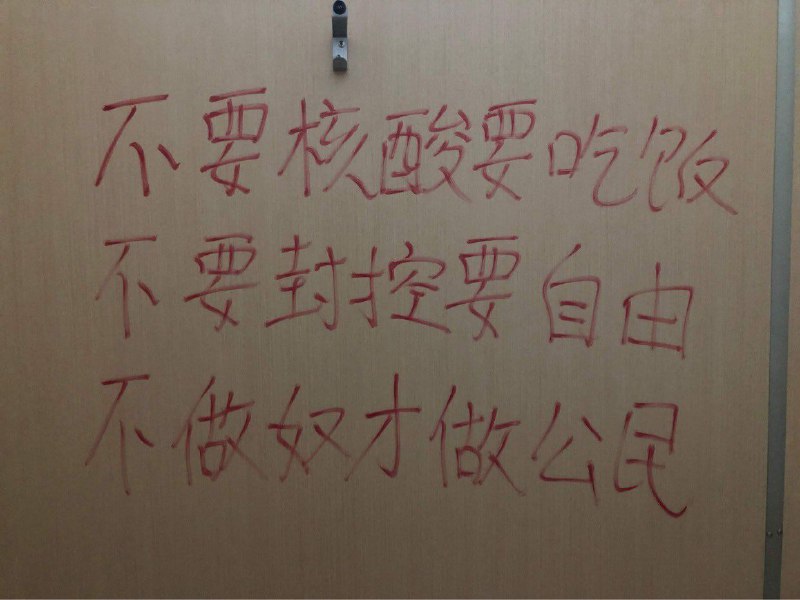 不要核酸要吃饭
不要封控要自由
不做奴才做公民